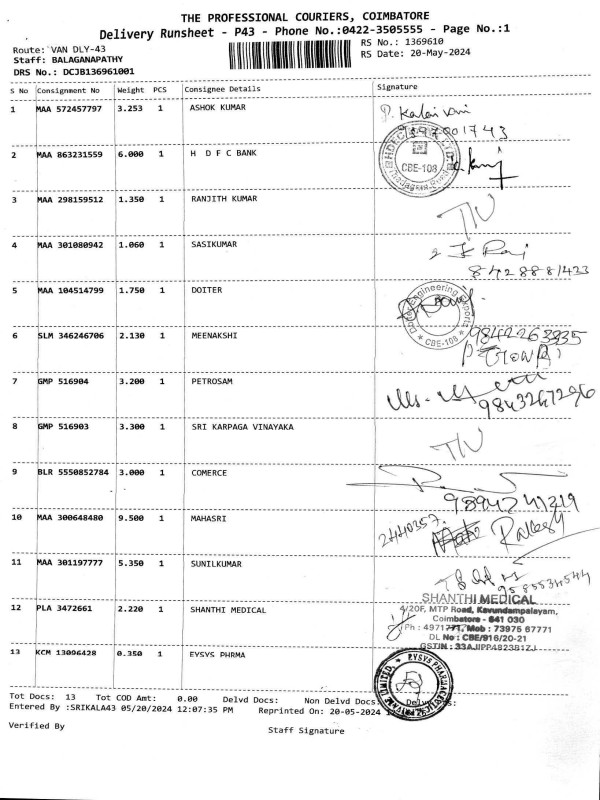 THE PROFESSIONAL COURIERS, COIMBATORE
Delivery Runsheet - P43 - Phone No.:0422-3505555 - Page No.:1
Route: VAN DLY-43
RS No.: 1369610
Staff: BALAGANAPATHY
RS Date: 20-May-2024
DRS No.: DCJB136961001
S No Consignment No Weight PCS Consignee Details Signature
1 MAA 572457797 3.253 1 ASHOK KUMAR P. Kalaivani
2 MAA 863231559 6.000 1 H D F C BANK CBE-108
3 MAA 298159512 1.350 1 RANJITH KUMAR
4 MAA 301080942 1.060 1 SASIKUMAR
5 MAA 104514799 1.750 1 DOITER Doiter Engineering Exports * CBE-108 *
6 SLM 346246706 2.130 1 MEENAKSHI 9842263335
7 GMP 516904 3.200 1 PETROSAM 9843267296
8 GMP 516903 3.300 1 SRI KARPAGA VINAYAKA
9 BLR 5550852784 3.000 1 COMERCE
10 MAA 300648480 9.500 1 MAHASRI 2440357
11 MAA 301197777 5.350 1 SUNILKUMAR
12 PLA 3472661 2.220 1 SHANTHI MEDICAL
SHANTHI MEDICAL
4/20F, MTP Road, Kavundampalayam,
Coimbatore - 641 030
Ph : 4971771, Mob : 73975 67771
DL No : CBE/916/20-21
13 KCM 13096428 0.350 1 EYSYS PHRMA
Tot Docs: 13 Tot COD Amt: 0.00 Delvd Docs: Non Delvd Docs:
Entered By :SRIKALA43 05/20/2024 12:07:35 PM Reprinted On: 20-05-2024
Verified By
Staff Signature